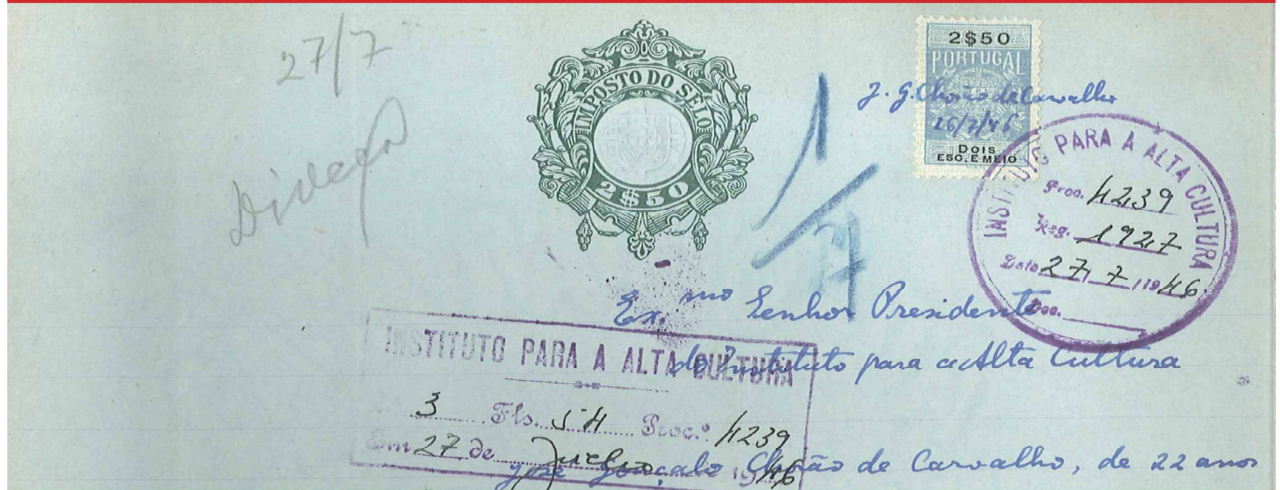 27/7
IMPOSTO DO SELO
2$50
2$50
PORTUGAL
DOIS
ESC. E MEIO
J. G. Chorão de Carvalho
26/7/46
1/7
INSTITUTO PARA A ALTA CULTURA
Proc. 4239
Reg. 1927
Data 27/7/1946
Doc.
Ex.mo Senhor Presidente
do Instituto para a Alta Cultura
INSTITUTO PARA A ALTA CULTURA
3 Fls. 54 Proc.º 4239
Em 27 de Julho 1946
José Gonçalo Chorão de Carvalho, de 22 anos